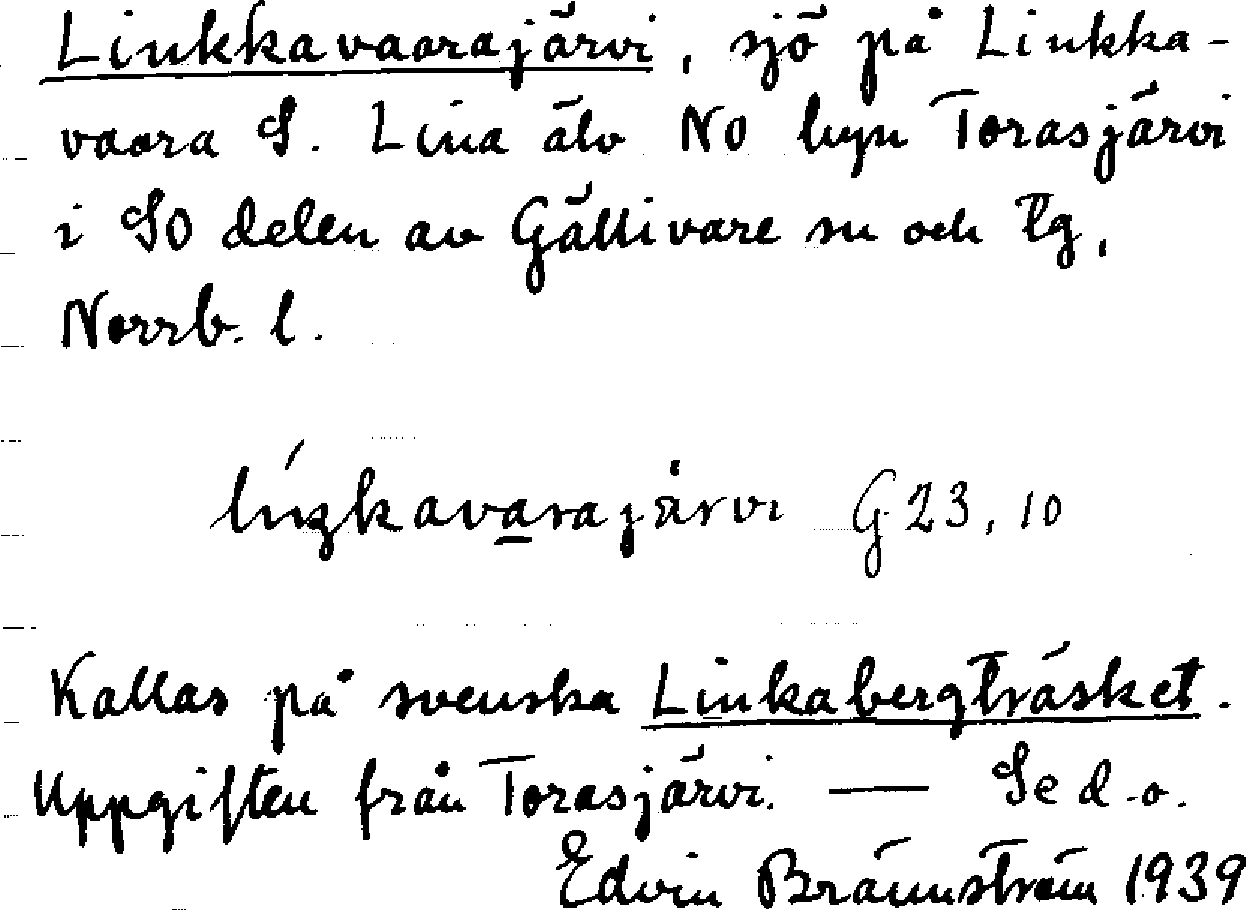 Linkkavaarajärvi, sjö på Linkka-
vaara S. Lina älv NO byn Torasjärvi
i SO delen av Gällivare sn och tg,
Norrb. l.
G 23, 10
Kallas på svenska Linkabergträsket.
Uppgiften från Torasjärvi. — Se d.o.
Edvin Brännström 1939